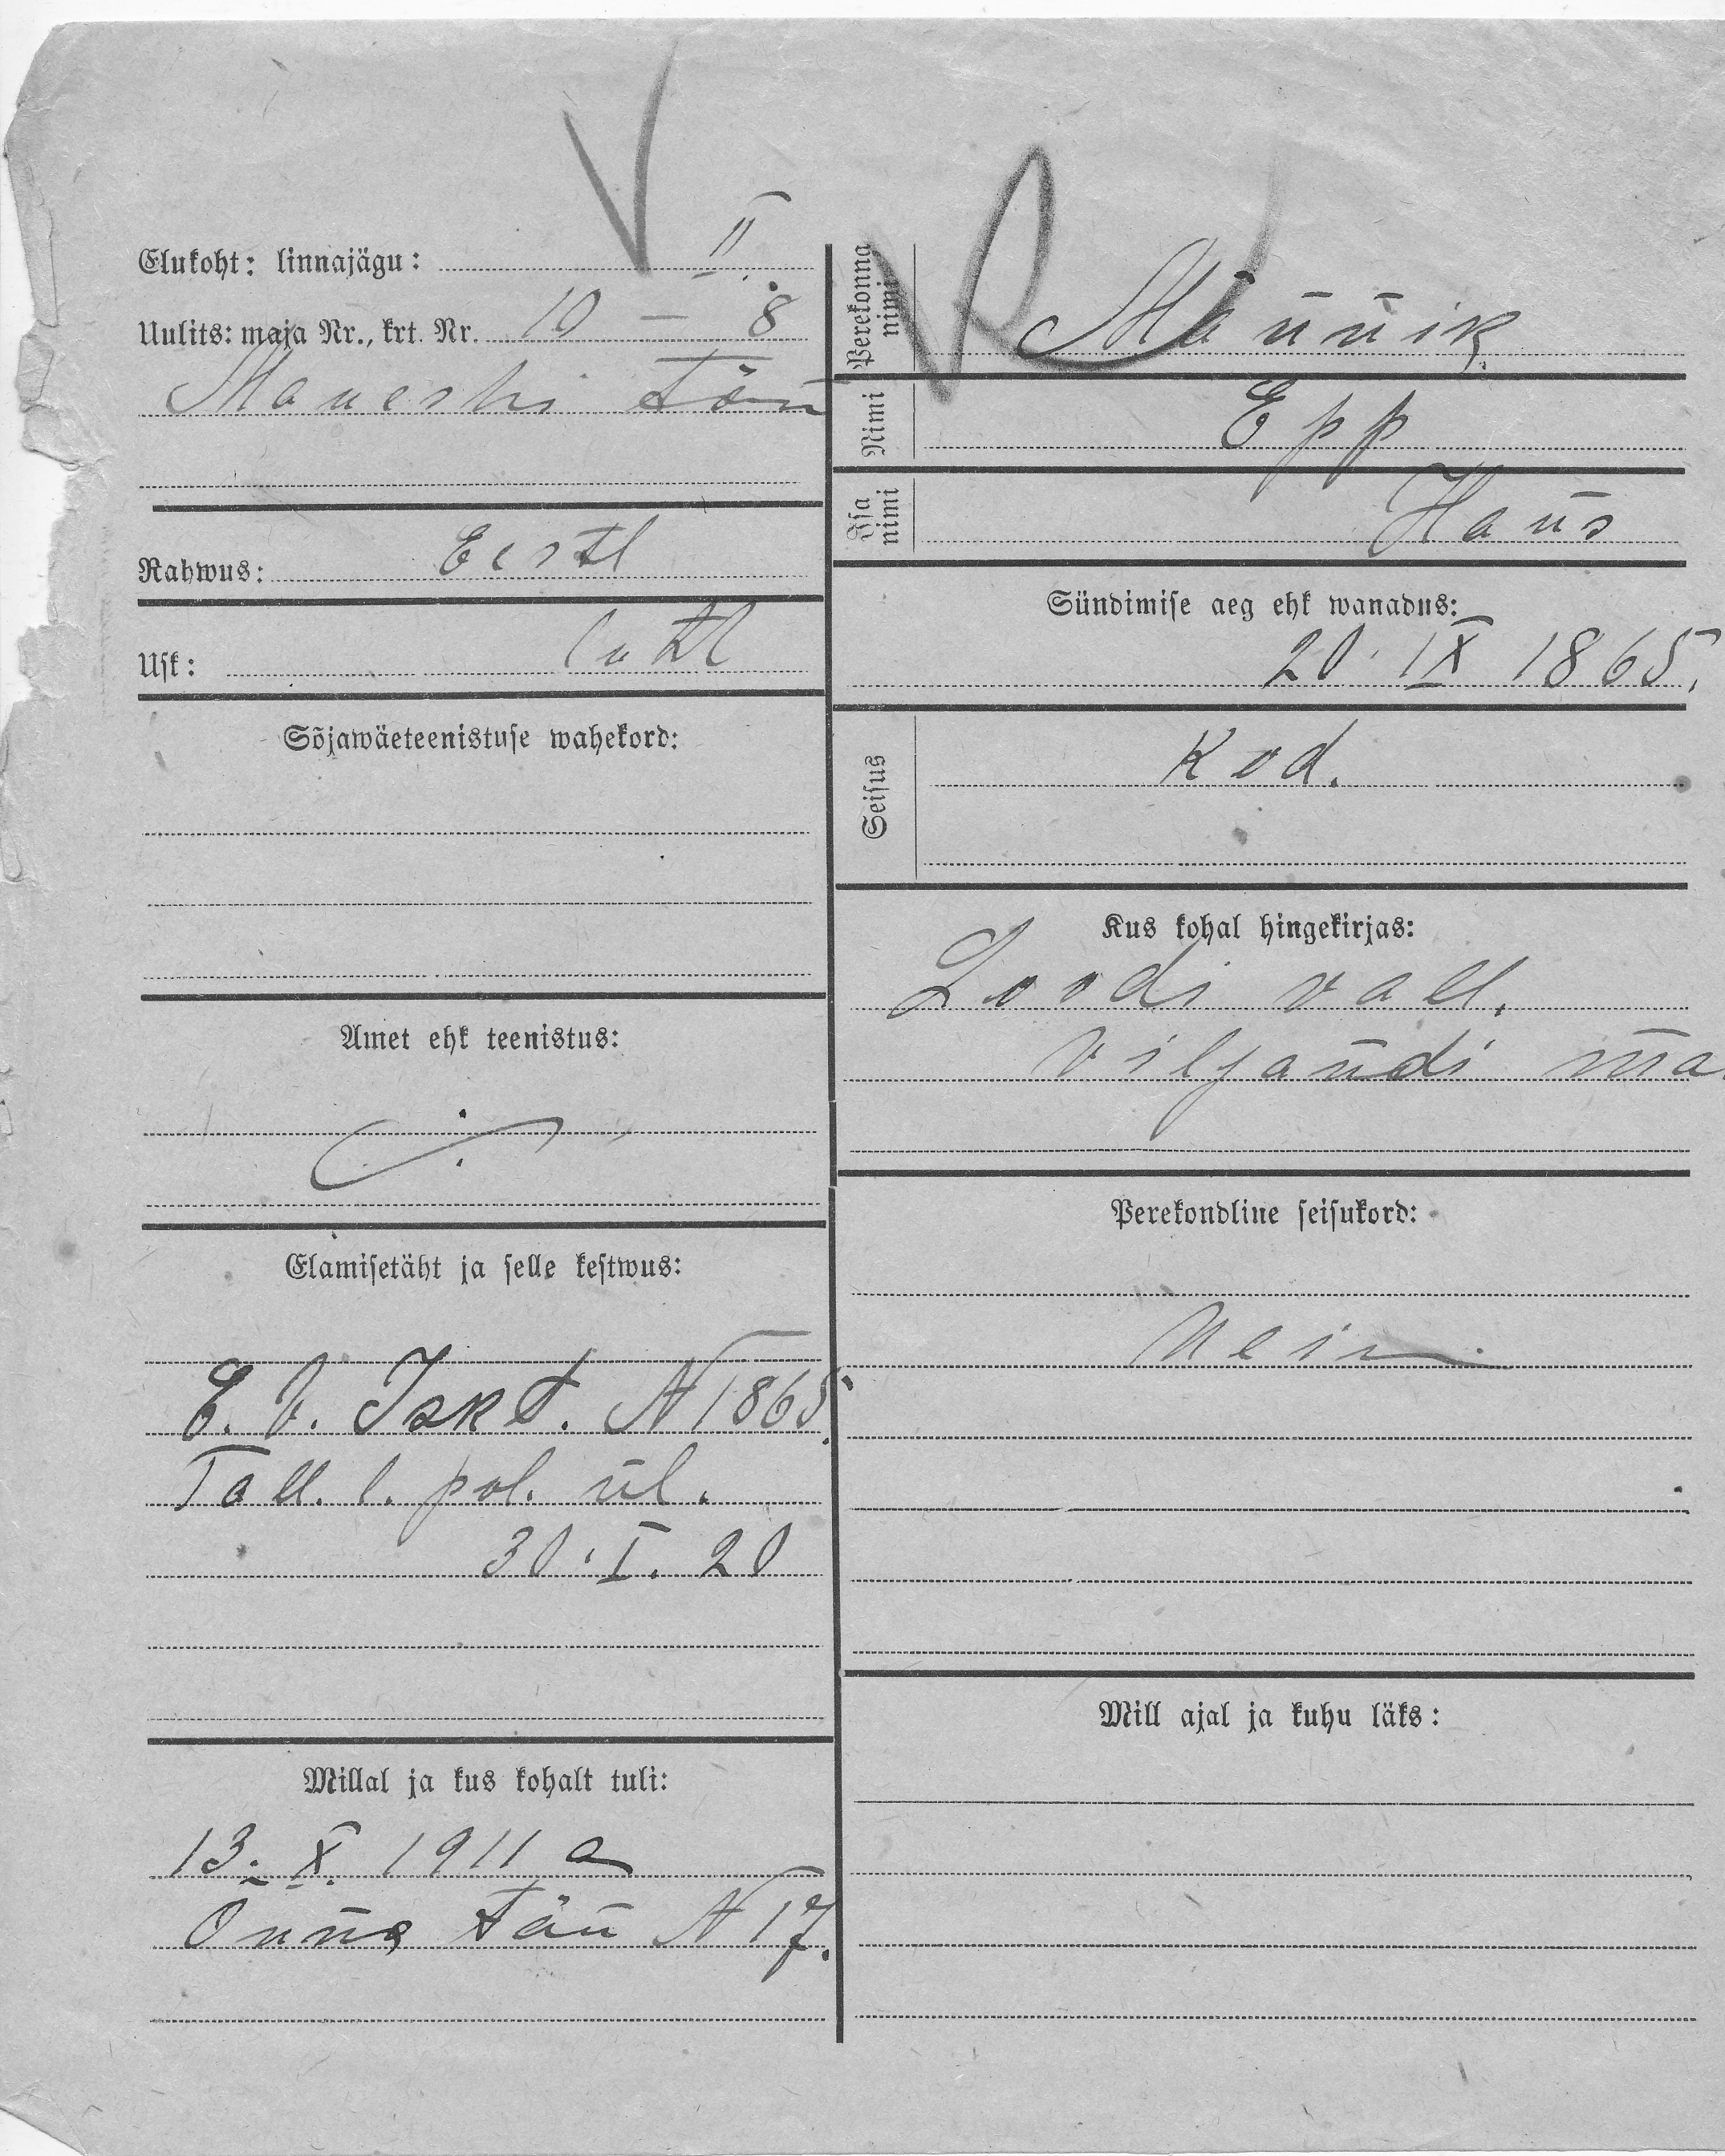 V
Elukoht: linnajagu: II
Uulits: maja Nr., krt. Nr. 10 — 8
Maneshi tän
Rahwus: Eestl
Usk: lutl
Sõjawäeteenistuse wahekord:
Amet ehk teenistus:
Elamisetäht ja selle kestwus:
E. V. Iskt. N 1865.
Tall. l. pol. ül.
30. I. 20
Millal ja kus kohalt tuli:
13. X. 1911 a
Õnne tän N 17.
Perekonna nimi Männik
Nimi Epp
Isa nimi Hans
Sündimise aeg ehk wanadus:
20. IX 1865.
Seisus Kod.
Kus kohal hingekirjas:
Loodi vall.
Viljandi ma.
Perekondline seisukord:
Mill ajal ja kuhu läks: